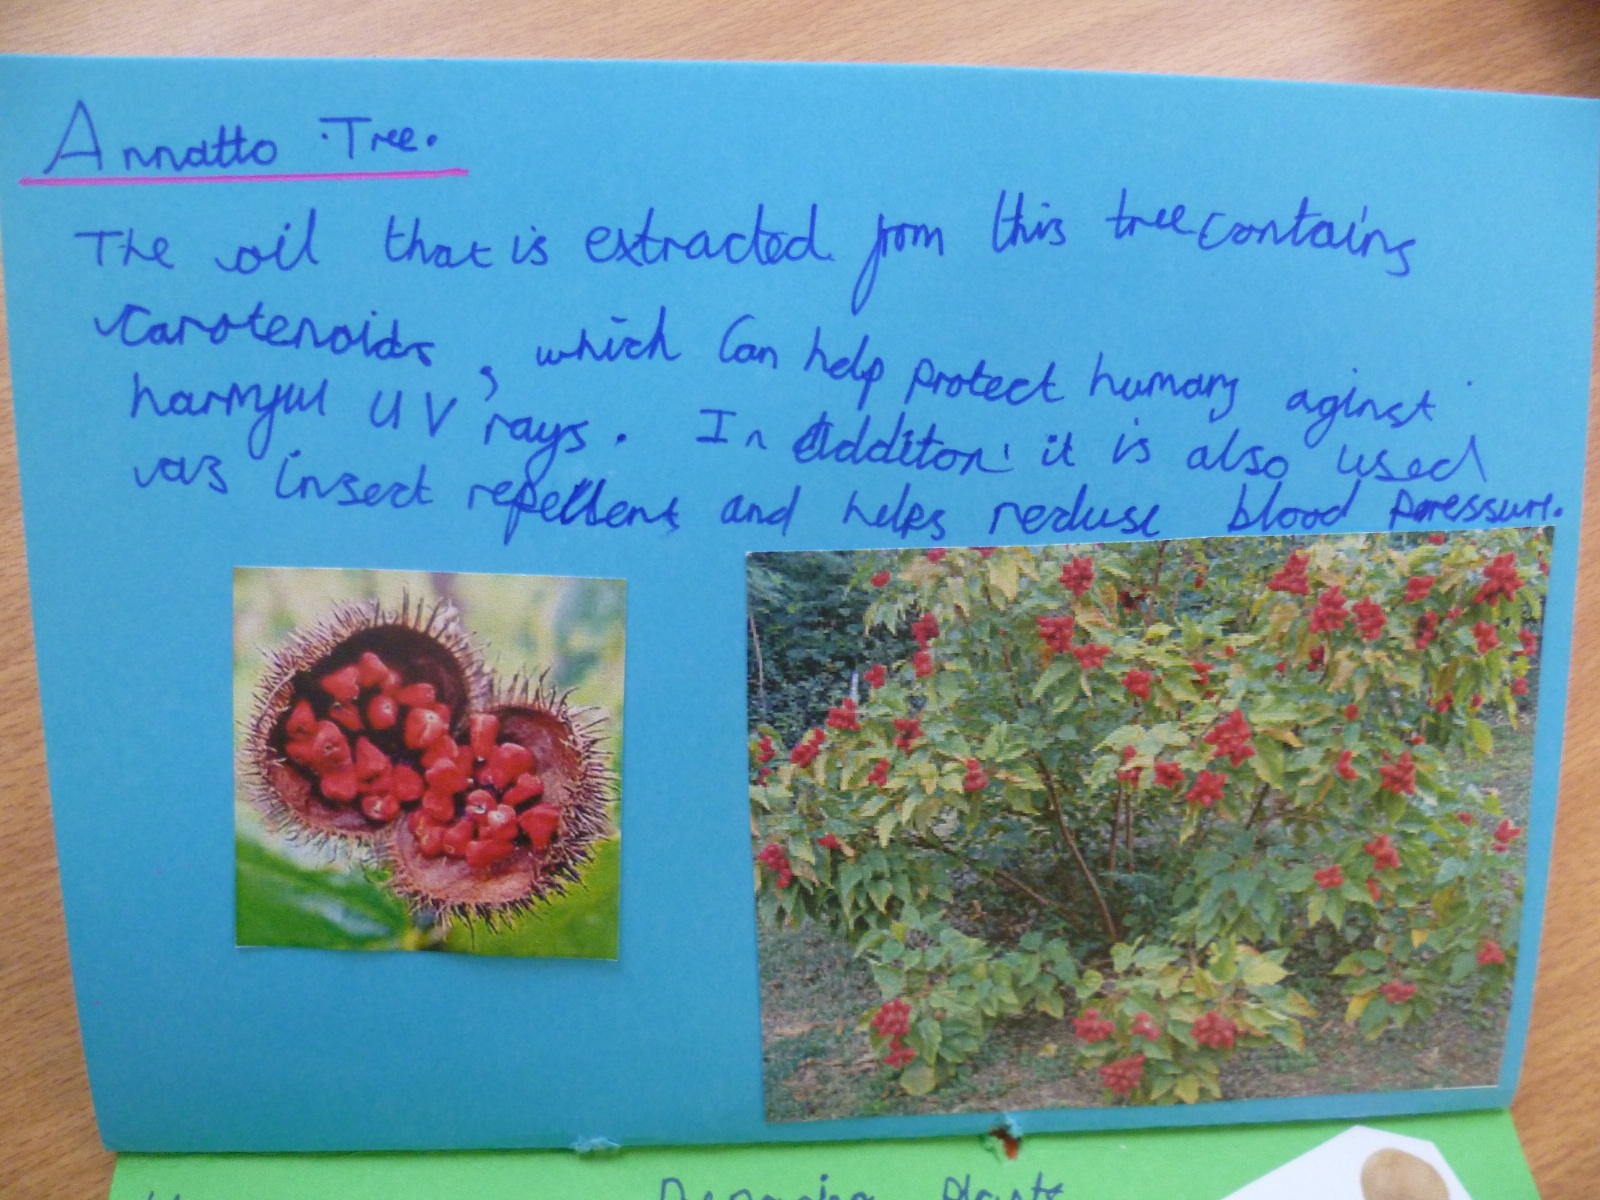 Annatto Tree.
The oil that is extracted from this tree contains
carotenoids, which can help protect humans aginst
harmful UV rays. In additon it is also used
as insect repellent and helps reduse blood pressure.
Plants